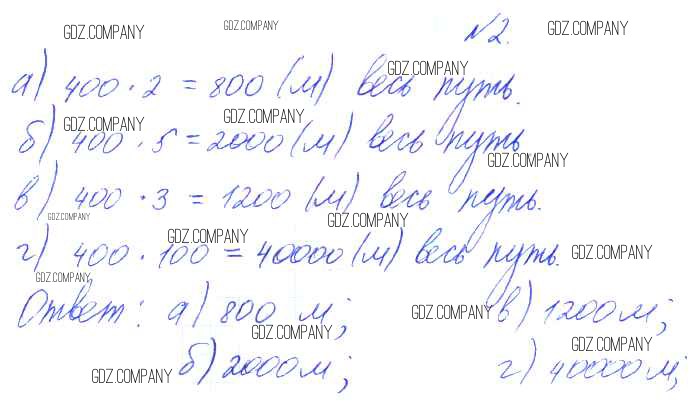 GDZ.COMPANY GDZ.COMPANY №2. GDZ.COMPANY
GDZ.COMPANY
а) 400 · 2 = 800 (м) весь путь.
GDZ.COMPANY GDZ.COMPANY
б) 400 · 5 = 2000 (м) весь путь
GDZ.COMPANY
в) 400 · 3 = 1200 (м) весь путь.
GDZ.COMPANY GDZ.COMPANY
GDZ.COMPANY GDZ.COMPANY
г) 400 · 100 = 40000 (м) весь путь.
GDZ.COMPANY
Ответ: а) 800 м; GDZ.COMPANY в) 1200 м;
GDZ.COMPANY GDZ.COMPANY
GDZ.COMPANY б) 2000 м; г) 40000 м;